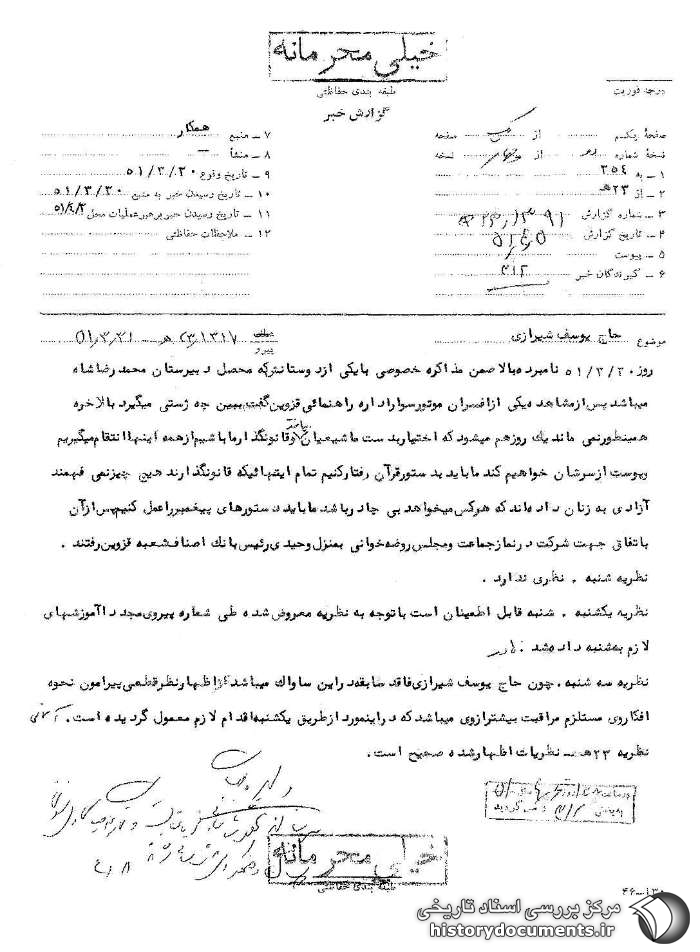 خیلی محرمانه
طبقه بندی حفاظتی
درجه فوریت
گزارش خبر
صفحهٔ یکم از یک صفحه
نسخهٔ شماره از چهار نسخه
۱ ـ به ۳۵۴
۲ ـ از ۲۳هـ
۳ ـ شماره گزارش
۴ ـ تاریخ گزارش ۵۱/۴/۵
۵ ـ پیوست
۶ ـ گیرندگان خبر ۳۱۲
۷ ـ منبع همکار
۸ ـ منشأ ـ
۹ ـ تاریخ وقوع ۵۱/۳/۲۰
۱۰ ـ تاریخ رسیدن خبر به منبع ۵۱/۳/۲۰
۱۱ ـ تاریخ رسیدن خبر برهبر عملیات محل ۵۱/۴/۳
۱۲ ـ ملاحظات حفاظتی
موضوع حاج یوسف شیرازی
پیرو ۲۳/۱۳۱۷هـ ـ ۵۱/۳/۳۱
روز ۵۱/۳/۲۰ نامبرده بالا ضمن مذاکره خصوصی بایکی ازدوستانش که محصل دبیرستان محمدرضاشاه
میباشد پس ازمشاهده یکی ازافسران موتورسوار اداره راهنمائی قزوین گفت ببین چه ژستی میگیرد بالاخره
همینطورنمی ماند یك روزهم میشود که اختیاربدست ما شیعیان بیفتد وقانونگذار ما باشیم ازهمه اینها انتقام میگیریم
وپوست ازسرشان خواهیم کند ما باید بدستورقرآن رفتارکنیم تمام اینهائیکه قانونگذارند هیچ چیزنمی فهمند
آزادی به زنان داده اند که هرکس میخواهد بی چادر باشد ما باید دستورهای پیغمبر راعمل کنیم پس ازآن
باتفاق جهت شرکت درنماز جماعت ومجلس روضه خوانی بمنزل وحیدی رئیس بانك اصناف شعبه قزوین رفتند .
نظریه شنبه . نظری ندارد .
نظریه یکشنبه . شنبه قابل اطمینان است باتوجه به نظریه معروض شده طی شماره پیروی مجددا آموزشهای
لازم به شنبه داده شد .
نظریه سه شنبه . چون حاج یوسف شیرازی فاقد سابقه دراین ساواك میباشد از اظهارنظرقطعی پیرامون نحوه
افکاروی مستلزم مراقبت بیشترازوی میباشد که دراینمورد ازطریق یکشنبه اقدام لازم معمول گردیده است .
نظریه ۲۳هـ ـ نظریات اظهارشده صحیح است .
خیلی محرمانه
طبقه بندی حفاظتی
مرکز بررسی اسناد تاریخی
historydocuments.ir